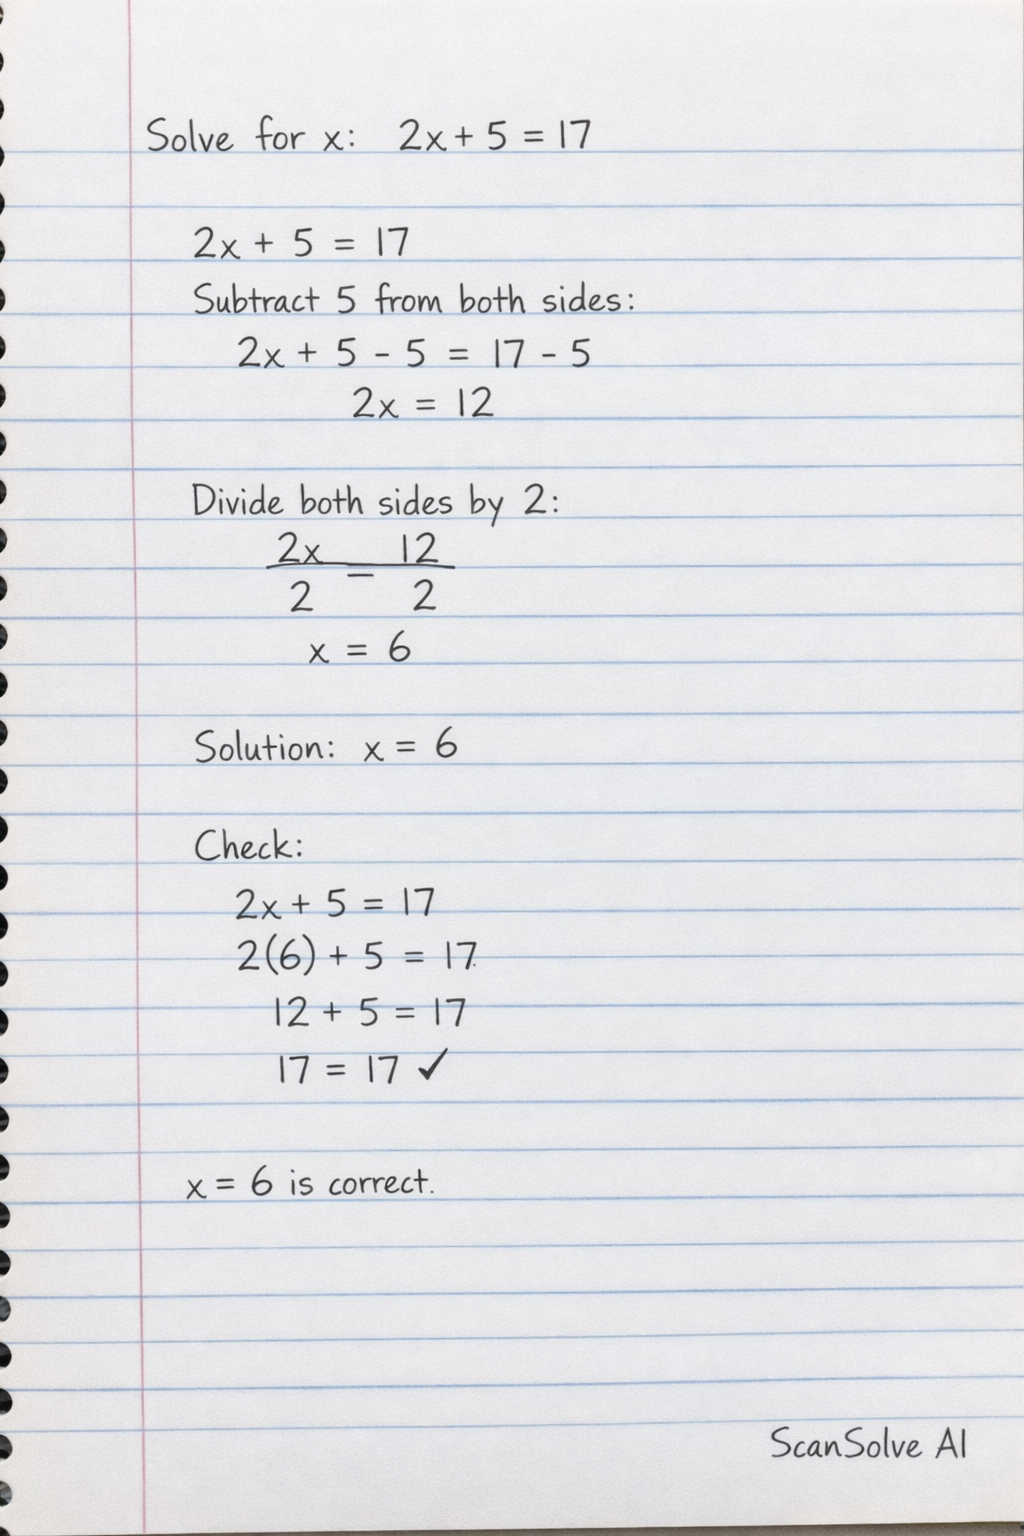 Solve for x: 2x + 5 = 17
2x + 5 = 17
Subtract 5 from both sides:
2x + 5 - 5 = 17 - 5
2x = 12
Divide both sides by 2:
2x 12
2 = 2
x = 6
Solution: x = 6
Check:
2x + 5 = 17
2(6) + 5 = 17
12 + 5 = 17
17 = 17 ✓
x = 6 is correct.
ScanSolve AI